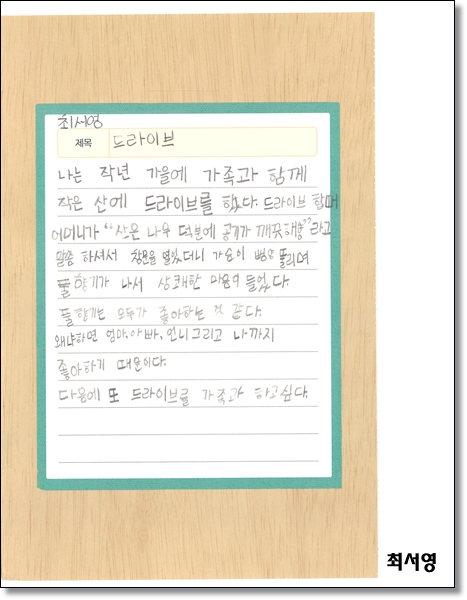 최서영
제목 드라이브
나는 작년 가을에 가족과 함께
작은 산에 드라이브를 했다. 드라이브 할때
어머니가 "산은 나무 덕분에 공기가 깨끗해" 라고
말씀 하셔서 창문을 열었더니 가슴이 뻥 뚤리며
풀향기가 나서 상쾌한 마음이 들었다.
풀향기는 모두가 좋아하는 것 같다.
왜냐하면 엄마,아빠,언니그리고 나까지
좋아하기 때문이다.
다음에 또 드라이브를 가족과 하고싶다.
최서영